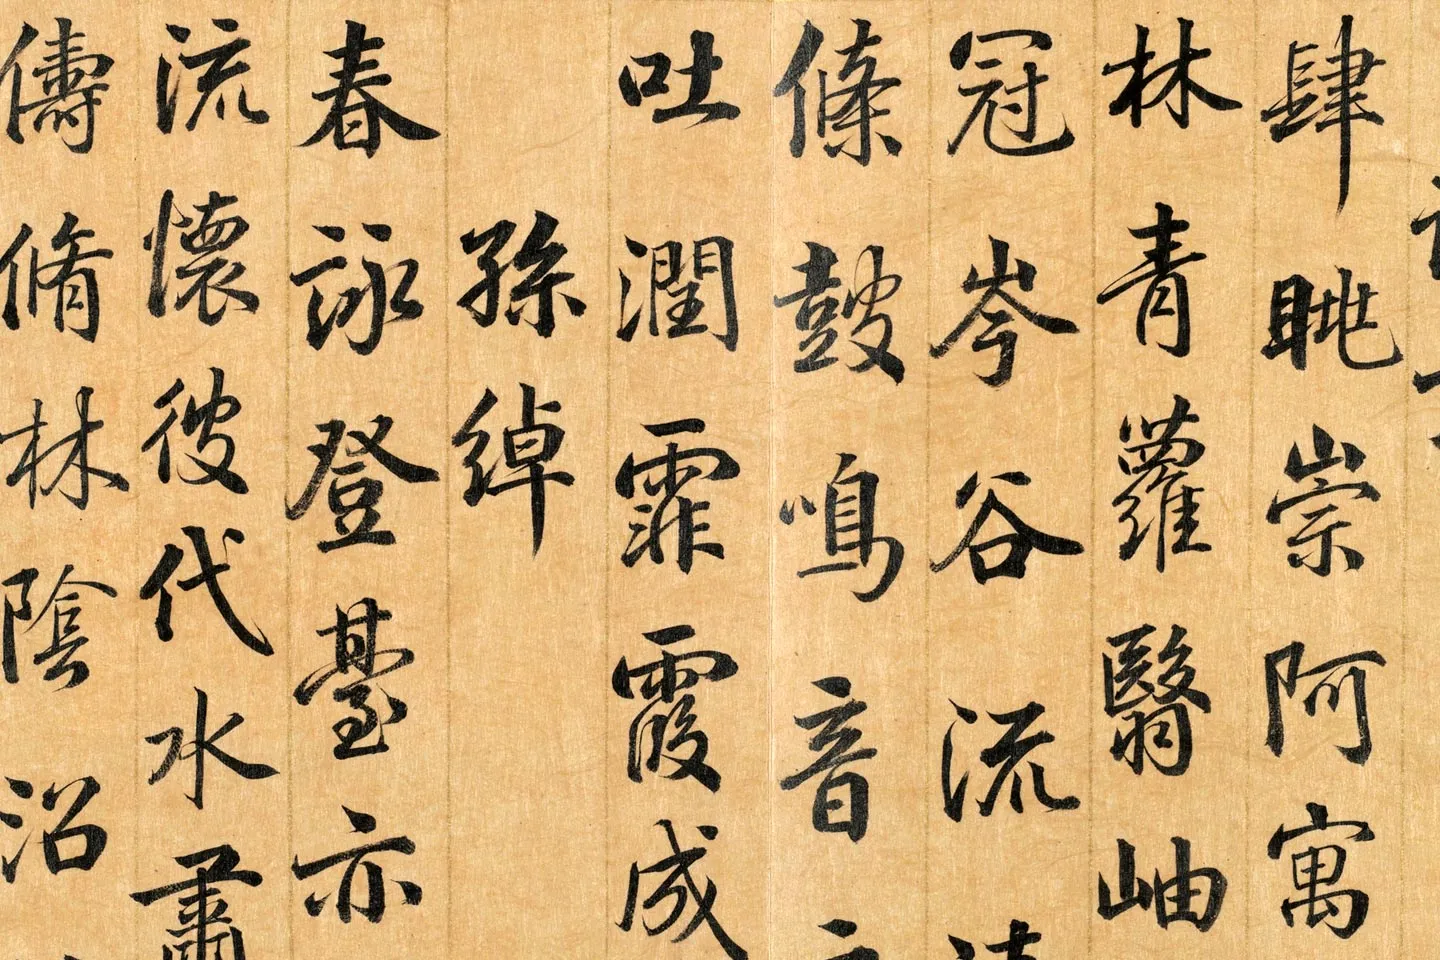 肆眺崇阿寓
林青蘿翳岫
冠岑谷流
條鼓鳴音
吐潤霏霞成
孫綽
春詠登臺亦
流懷彼伐水肅
儔脩林陰沼